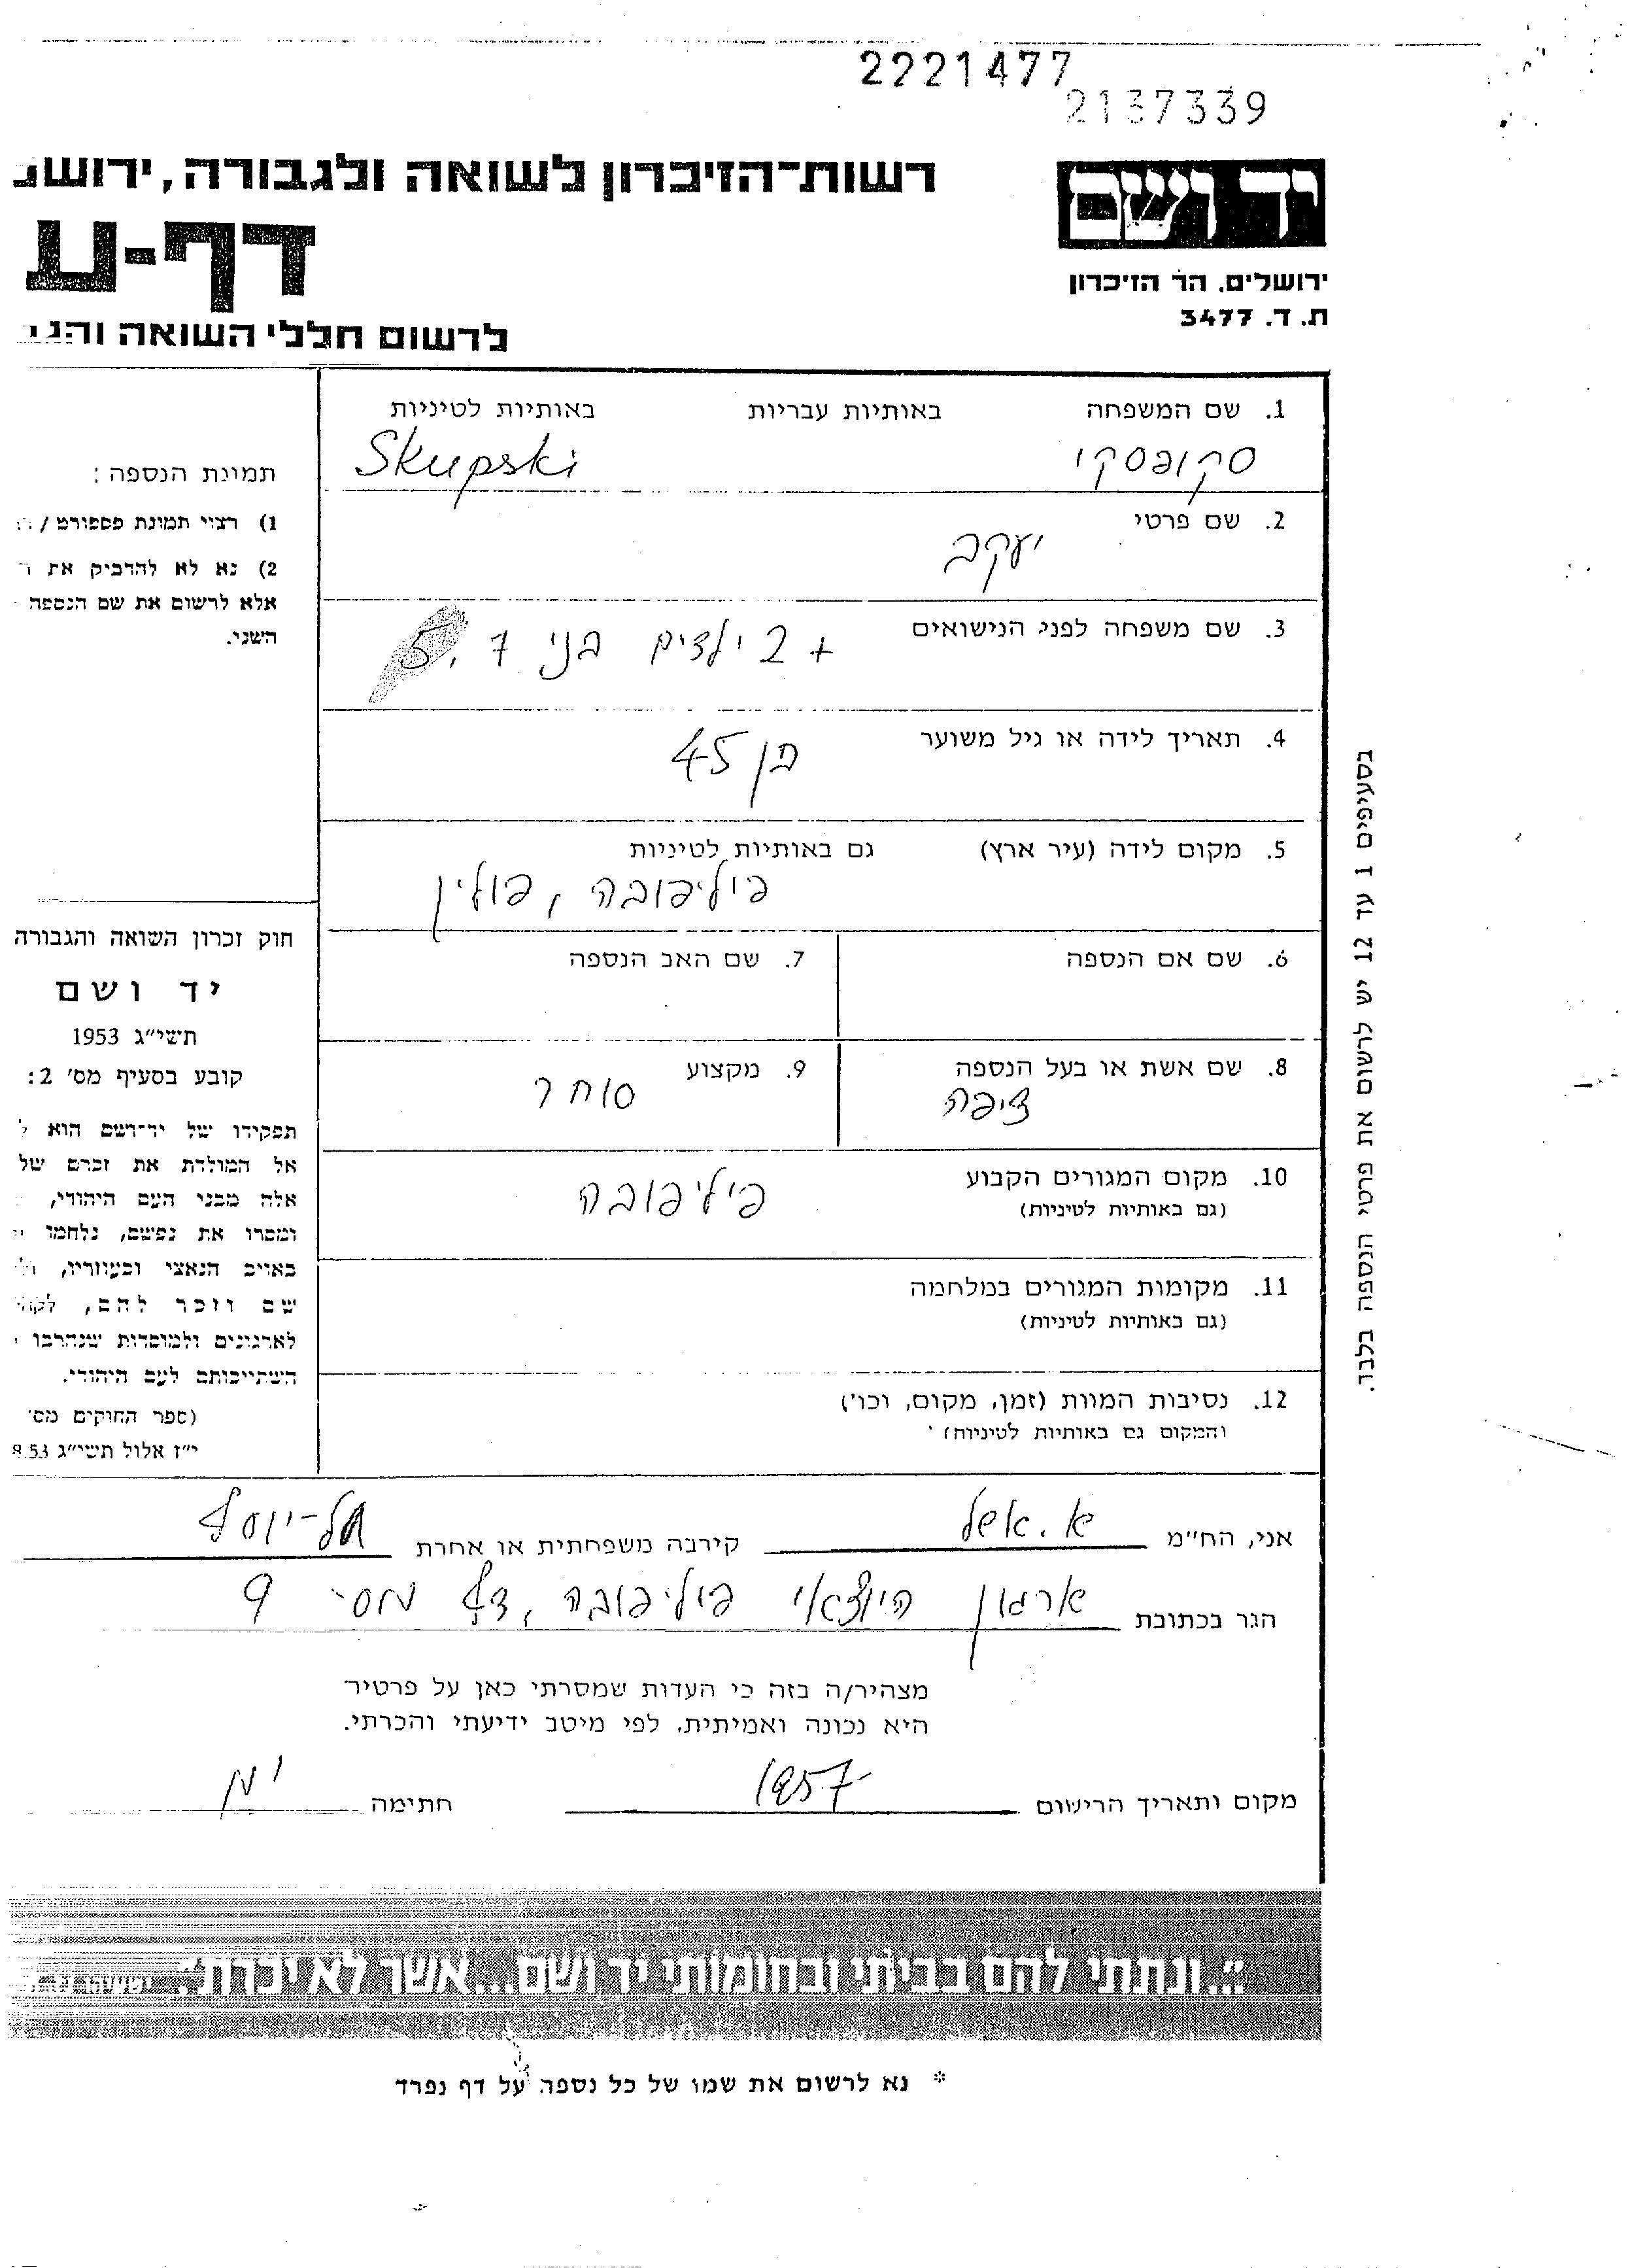 2221477
2137339
יד ושם
ירושלים. הר הזיכרון
ת. ד. 3477
רשות-הזיכרון לשואה ולגבורה, ירוש
דף-ע
לרשום חללי השואה והג
1. שם המשפחה באותיות עבריות באותיות לטיניות
סקופסקי Skupski
2. שם פרטי
יעקב
3. שם משפחה לפני הנישואים
+ 2 ילדים בני 7, 5
4. תאריך לידה או גיל משוער
בן 45
5. מקום לידה (עיר ארץ) גם באותיות לטיניות
פיליפובה, פולין
6. שם אם הנספה
7. שם האב הנספה
8. שם אשת או בעל הנספה
ציפה
9. מקצוע
סוחר
10. מקום המגורים הקבוע
(גם באותיות לטיניות)
פיליפובה
11. מקומות המגורים במלחמה
(גם באותיות לטיניות)
12. נסיבות המוות (זמן, מקום, וכו')
(המקום גם באותיות לטיניות)
תמונת הנספה:
1) רצוי תמונת פספורט /
2) נא לא להדביק את
אלא לרשום את שם הנספה
השני.
חוק זכרון השואה והגבורה
יד ושם
תשי״ג 1953
קובע בסעיף מס' 2:
תפקידו של יד־ושם הוא ל
אל המולדת את זכרם של
אלה מבני העם היהודי,
ומסרו את נפשם, נלחמו
באויב הנאצי ובעוזריו,
שם וזכר להם,
לארגונים ולמוסדות שנחרבו
השתייכותם לעם היהודי.
(ספר החוקים מס'
י״ז אלול תשי״ג 8.53
בסעיפים 1 עד 12 יש לרשום את פרטי הנספה בלבד.
אני, הח״מ א. אשל קירבה משפחתית או אחרת תל-יוסף
הגר בכתובת ארגון היוצאי פיליפובה, דף מס' 9
מצהיר/ה בזה כי העדות שמסרתי כאן על פרטיה
היא נכונה ואמיתית, לפי מיטב ידיעתי והכרתי.
מקום ותאריך הרישום 1957 חתימה
״...ונתתי להם בביתי ובחומותי יד ושם...אשר לא יכרת״. ישעיהו
* נא לרשום את שמו של כל נספה על דף נפרד